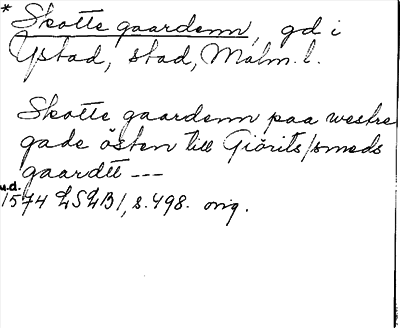 * Skotte gaardenn, gd i
Ystad, stad, Malm. l.
Skotte gaardenn paa westre
gade östen till Giörits smeds
gaardtt ---
u.d.
1574 LSLB1, s. 498. orig.